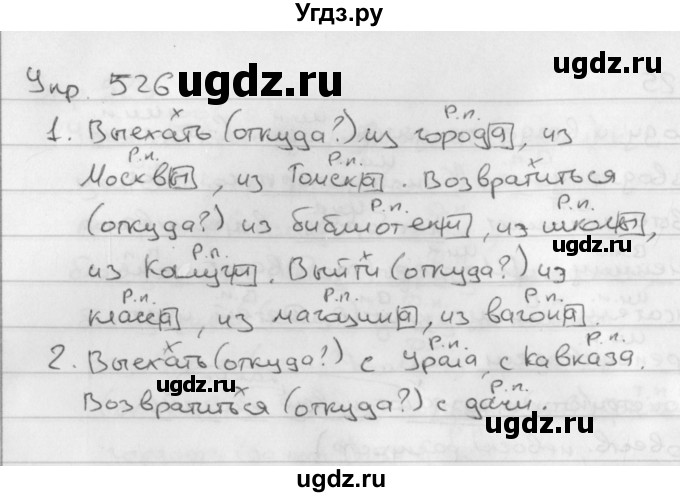 Угдз.ру
Упр. 526 ugdz.ru ugdz.ru
х Р.п.
1. Выехать (откуда?) из города, из
Р.п. Р.п. х
Москвы, из Томска. Возвратиться
Р.п. Р.п.
(откуда?) из библиотеки, из школы,
Р.п. х
из Калуги. Выйти (откуда?) из
Р.п. Р.п. Р.п.
класса, из магазина, из вагона.
х Р.п. Р.п.
2. Выехать (откуда?) с Урала, с Кавказа.
х Р.п.
Возвратиться (откуда?) с дачи.
ugdz.ru
ugdz.ru
ugdz.ru
ugdz.ru
ugdz.ru
ugdz.ru